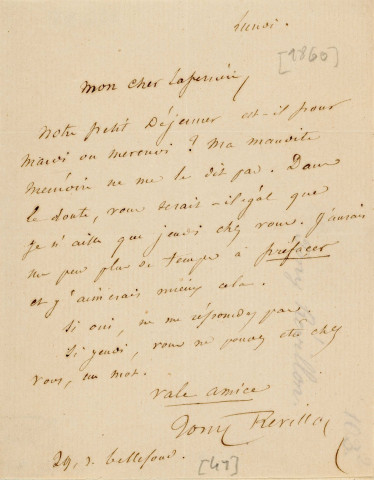 lundi.
[1860]
mon cher Laferrière,
notre petit Déjeuner est-il pour
mardi ou mercredi ? ma maudite
mémoire ne me le dit pas. Dans
le doute, vous serait-il égal que
je n'aille que jeudi chez vous. J'aurais
un peu plus de temps à préfacer
et j'aimerais mieux cela.
Si oui, ne me répondez pas.
Si jeudi, vous ne pouvez être chez
vous, un mot.
vale amice
Tony Révillon
29, r. bellefond.
[41]